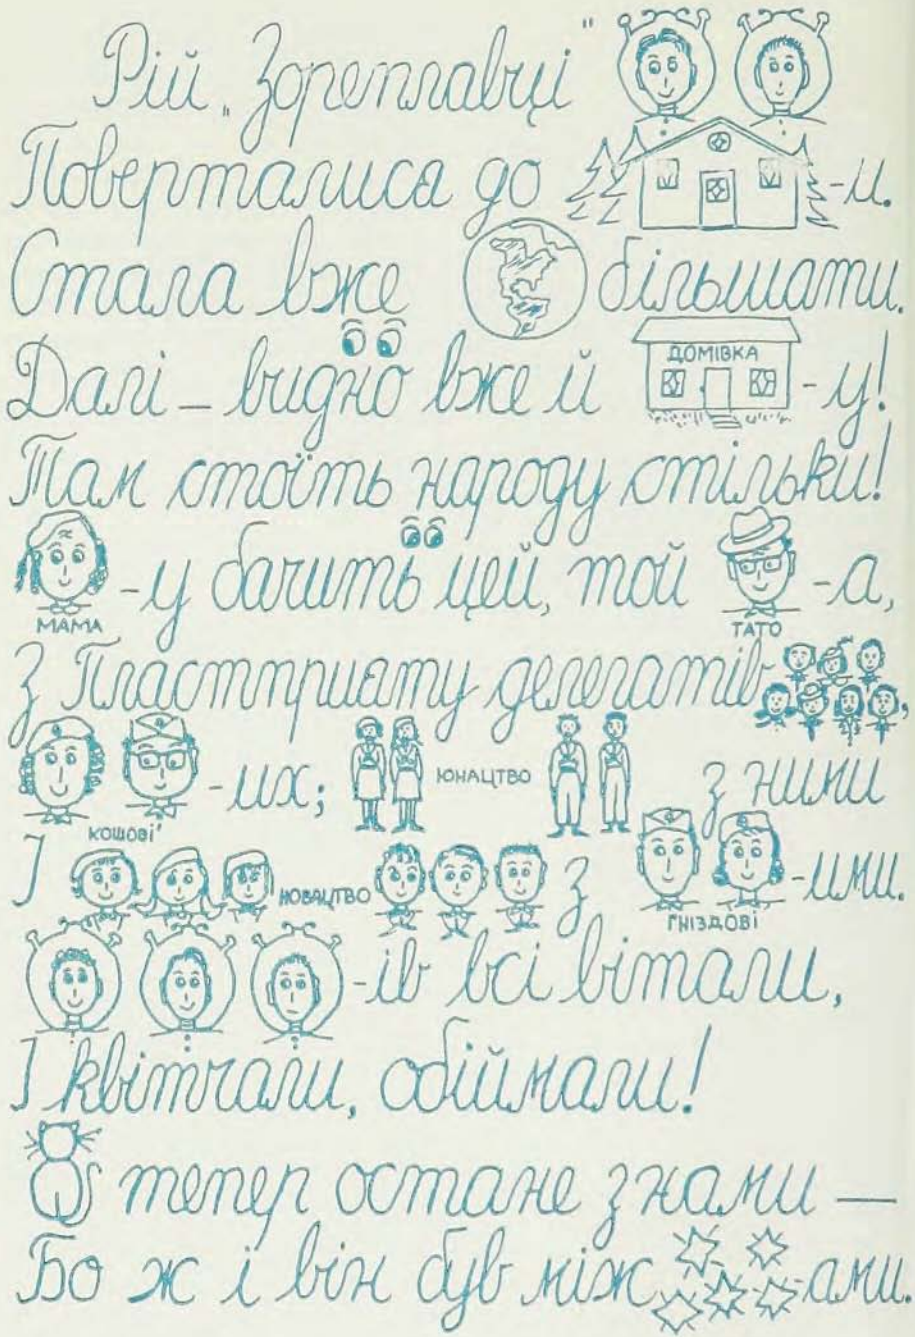 Рій „Зореплавці"
Поверталися до -и.
Стала вже більшати.
Далі – видно вже й ДОМІВКА -у!
Там стоїть народу стільки!
МАМА -у бачить цей, той ТАТО -а,
З Пластприяту делегатів,
КОШОВІ -их; ЮНАЦТВО з ними
І НОВАЦТВО з ГНІЗДОВІ -ими.
-ів всі вітали,
І квітчали, обіймали!
тепер остане з нами —
Бо ж і він був між -ами.